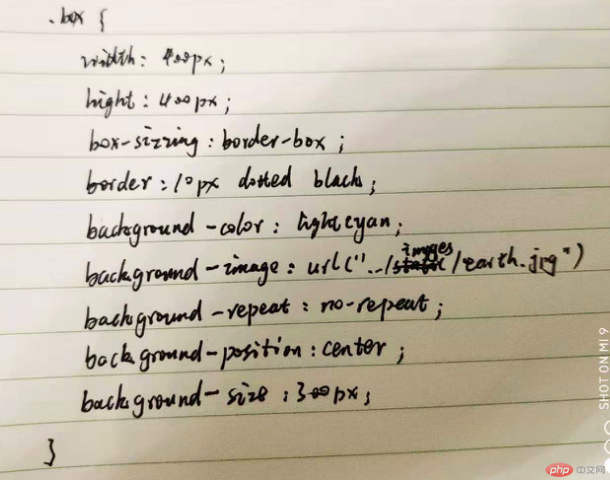 .box {
width: 400px;
hight: 400px;
box-sizing: border-box;
border: 10px dotted black;
background-color: lightcyan;
background-image: url("../images/earth.jpg")
background-repeat: no-repeat;
background-position: center;
background-size: 300px;
}
SHOT ON MI 9
php 中文网